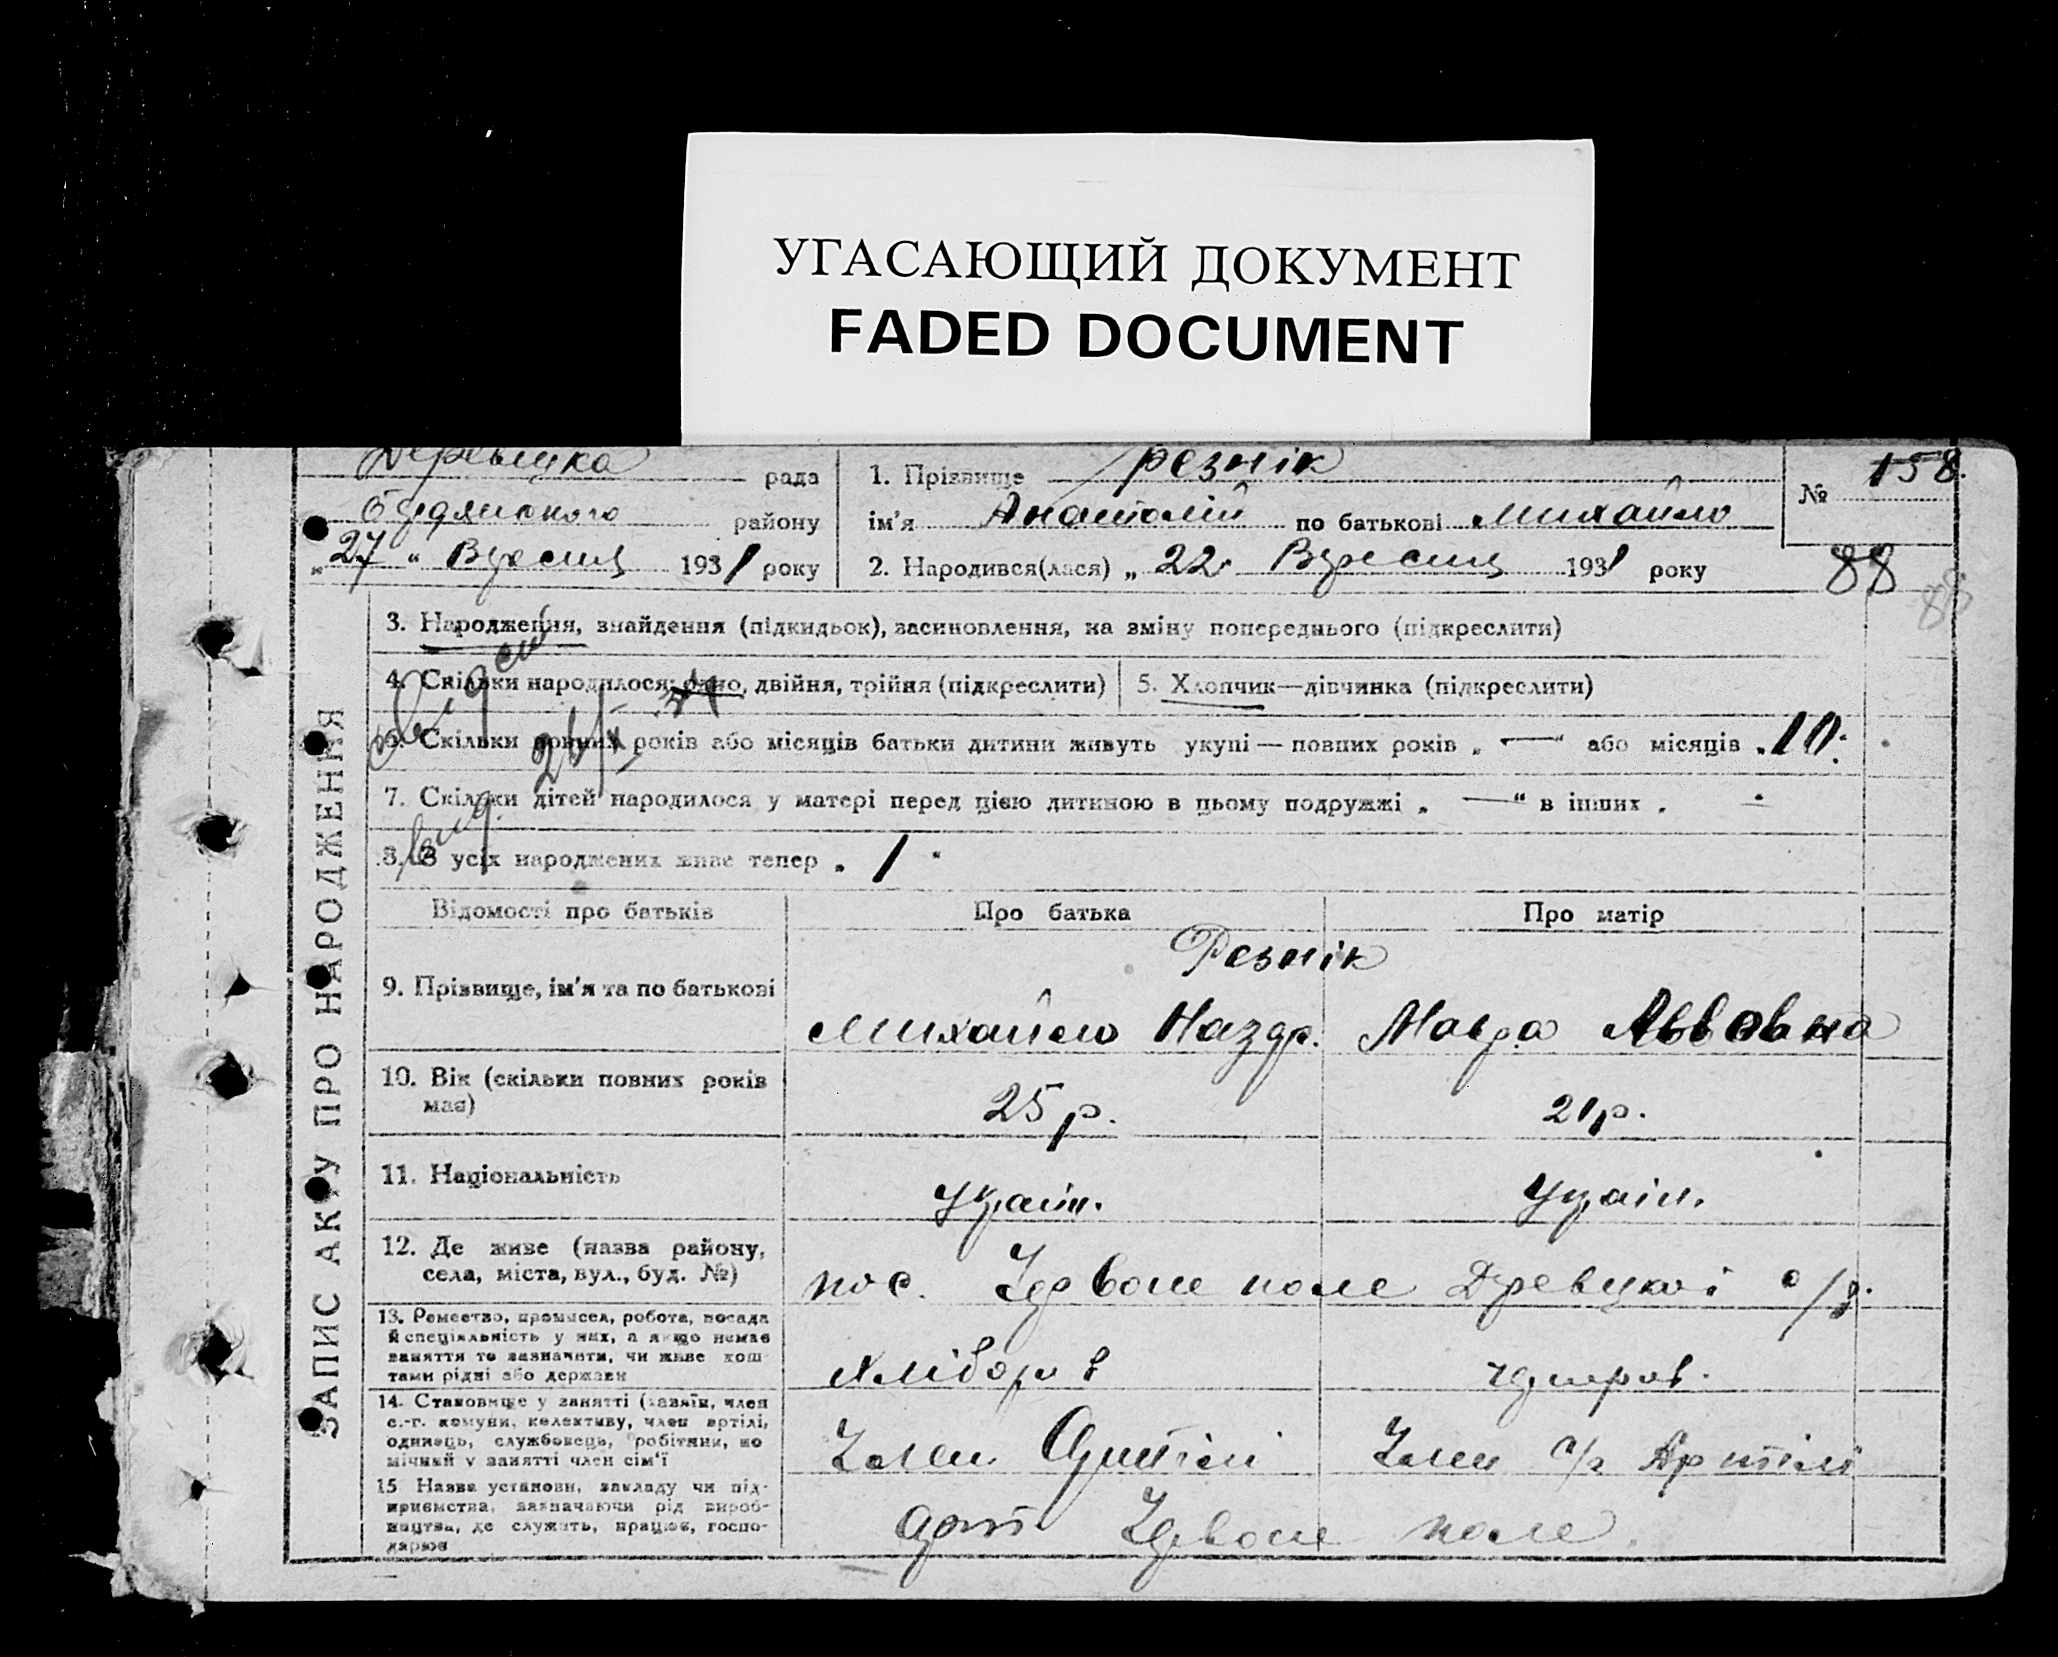 УГАСАЮЩИЙ ДОКУМЕНТ
FADED DOCUMENT
рада
району
„27“ Вересня 1931 року
1. Прізвище Резнік
ім'я Анатолій по батькові Михайло
2. Народився(лася) „22 Вересня 1931 року
№ 158.
88
88
ЗАПИС АКТУ ПРО НАРОДЖЕННЯ
3. Народження, знайдення (підкидьок), засиновлення, на зміну попереднього (підкреслити)
4. Скільки народилося: одно, двійня, трійня (підкреслити)
5. Хлопчик—дівчинка (підкреслити)
6. Скільки повних років або місяців батьки дитини живуть укупі — повних років „—“ або місяців „10.
7. Скільки дітей народилося у матері перед цією дитиною в цьому подружжі „—“ в інших „
8. З усіх народжених живе тепер „1
Відомості про батьків Про батька Про матір
Резнік
9. Прізвище, ім'я та по батькові
Михайло Назар. Мавра
10. Вік (скільки повних років має)
25 р. 21 р.
11. Національність
Україн. Україн.
12. Де живе (назва району, села, міста, вул., буд. №)
пос. поле с/р.
13. Ремество, промысел, робота, посада й спеціяльність у них, а якщо немає заняття то зазначити, чи живе коштами рідні або держави
Хлібороб
14. Становище у занятті (хазяїн, член с.-г. комуни, колективу, член артілі, одинець, службовець, робітник, помічний у занятті член сім'ї
Член Артілі Член с/г Артілі
15 Назва установи, закладу чи підприємства, зазначаючи рід виробництва, де служить, працює, господарює
Арт поле